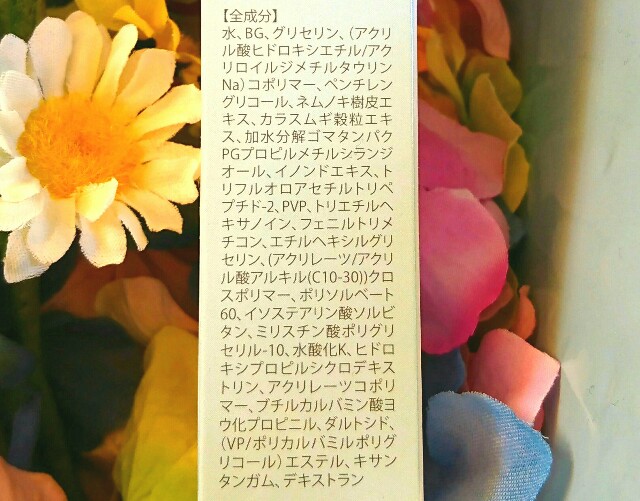 【全成分】
水、BG、グリセリン、（アクリ
ル酸ヒドロキシエチル/アク
リロイルジメチルタウリン
Na）コポリマー、ペンチレン
グリコール、ネムノキ樹皮エ
キス、カラスムギ穀粒エキ
ス、加水分解ゴマタンパク
PGプロピルメチルシランジ
オール、イノンドエキス、ト
リフルオロアセチルトリペ
プチド-2、PVP、トリエチルヘ
キサノイン、フェニルトリメ
チコン、エチルヘキシルグリ
セリン、(アクリレーツ/アクリ
ル酸アルキル(C10-30))クロ
スポリマー、ポリソルベート
60、イソステアリン酸ソルビ
タン、ミリスチン酸ポリグリ
セリル-10、水酸化K、ヒドロ
キシプロピルシクロデキス
トリン、アクリレーツコポリ
マー、ブチルカルバミン酸ヨ
ウ化プロピニル、ダルトシド、
（VP/ポリカルバミルポリグ
リコール）エステル、キサン
タンガム、デキストラン